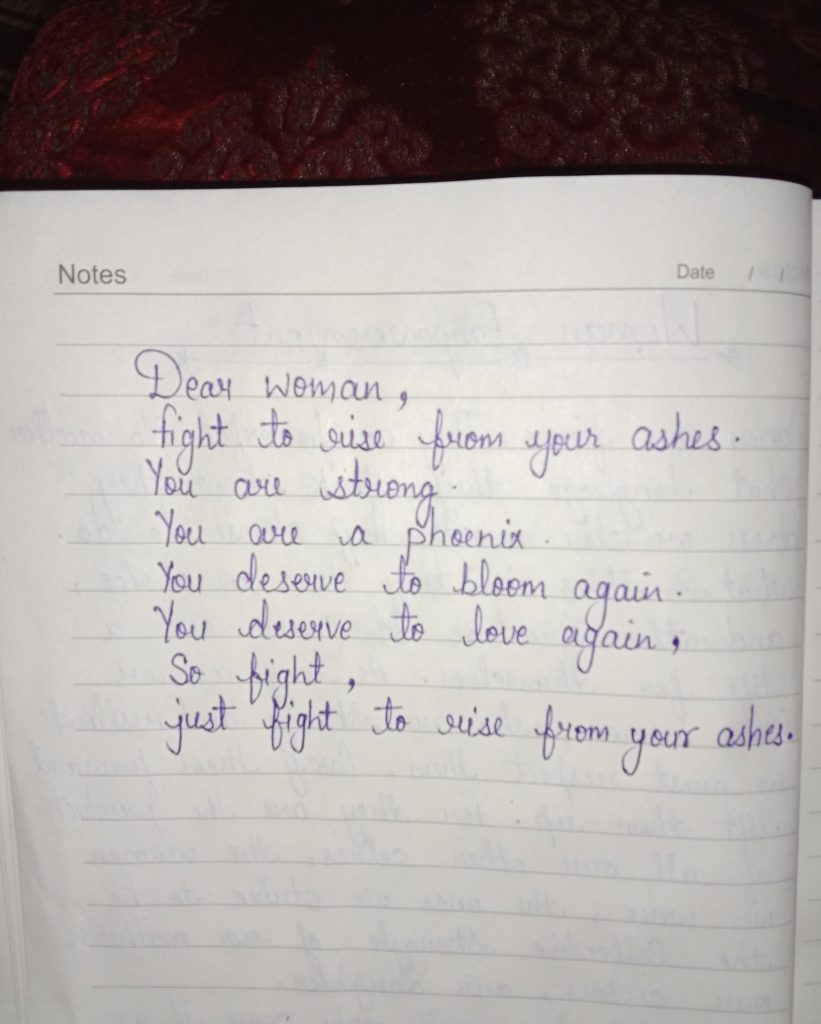 Notes
Date / /
Dear woman,
fight to rise from your ashes.
You are strong.
You are a phoenix.
You deserve to bloom again.
You deserve to love again,
So fight,
just fight to rise from your ashes.